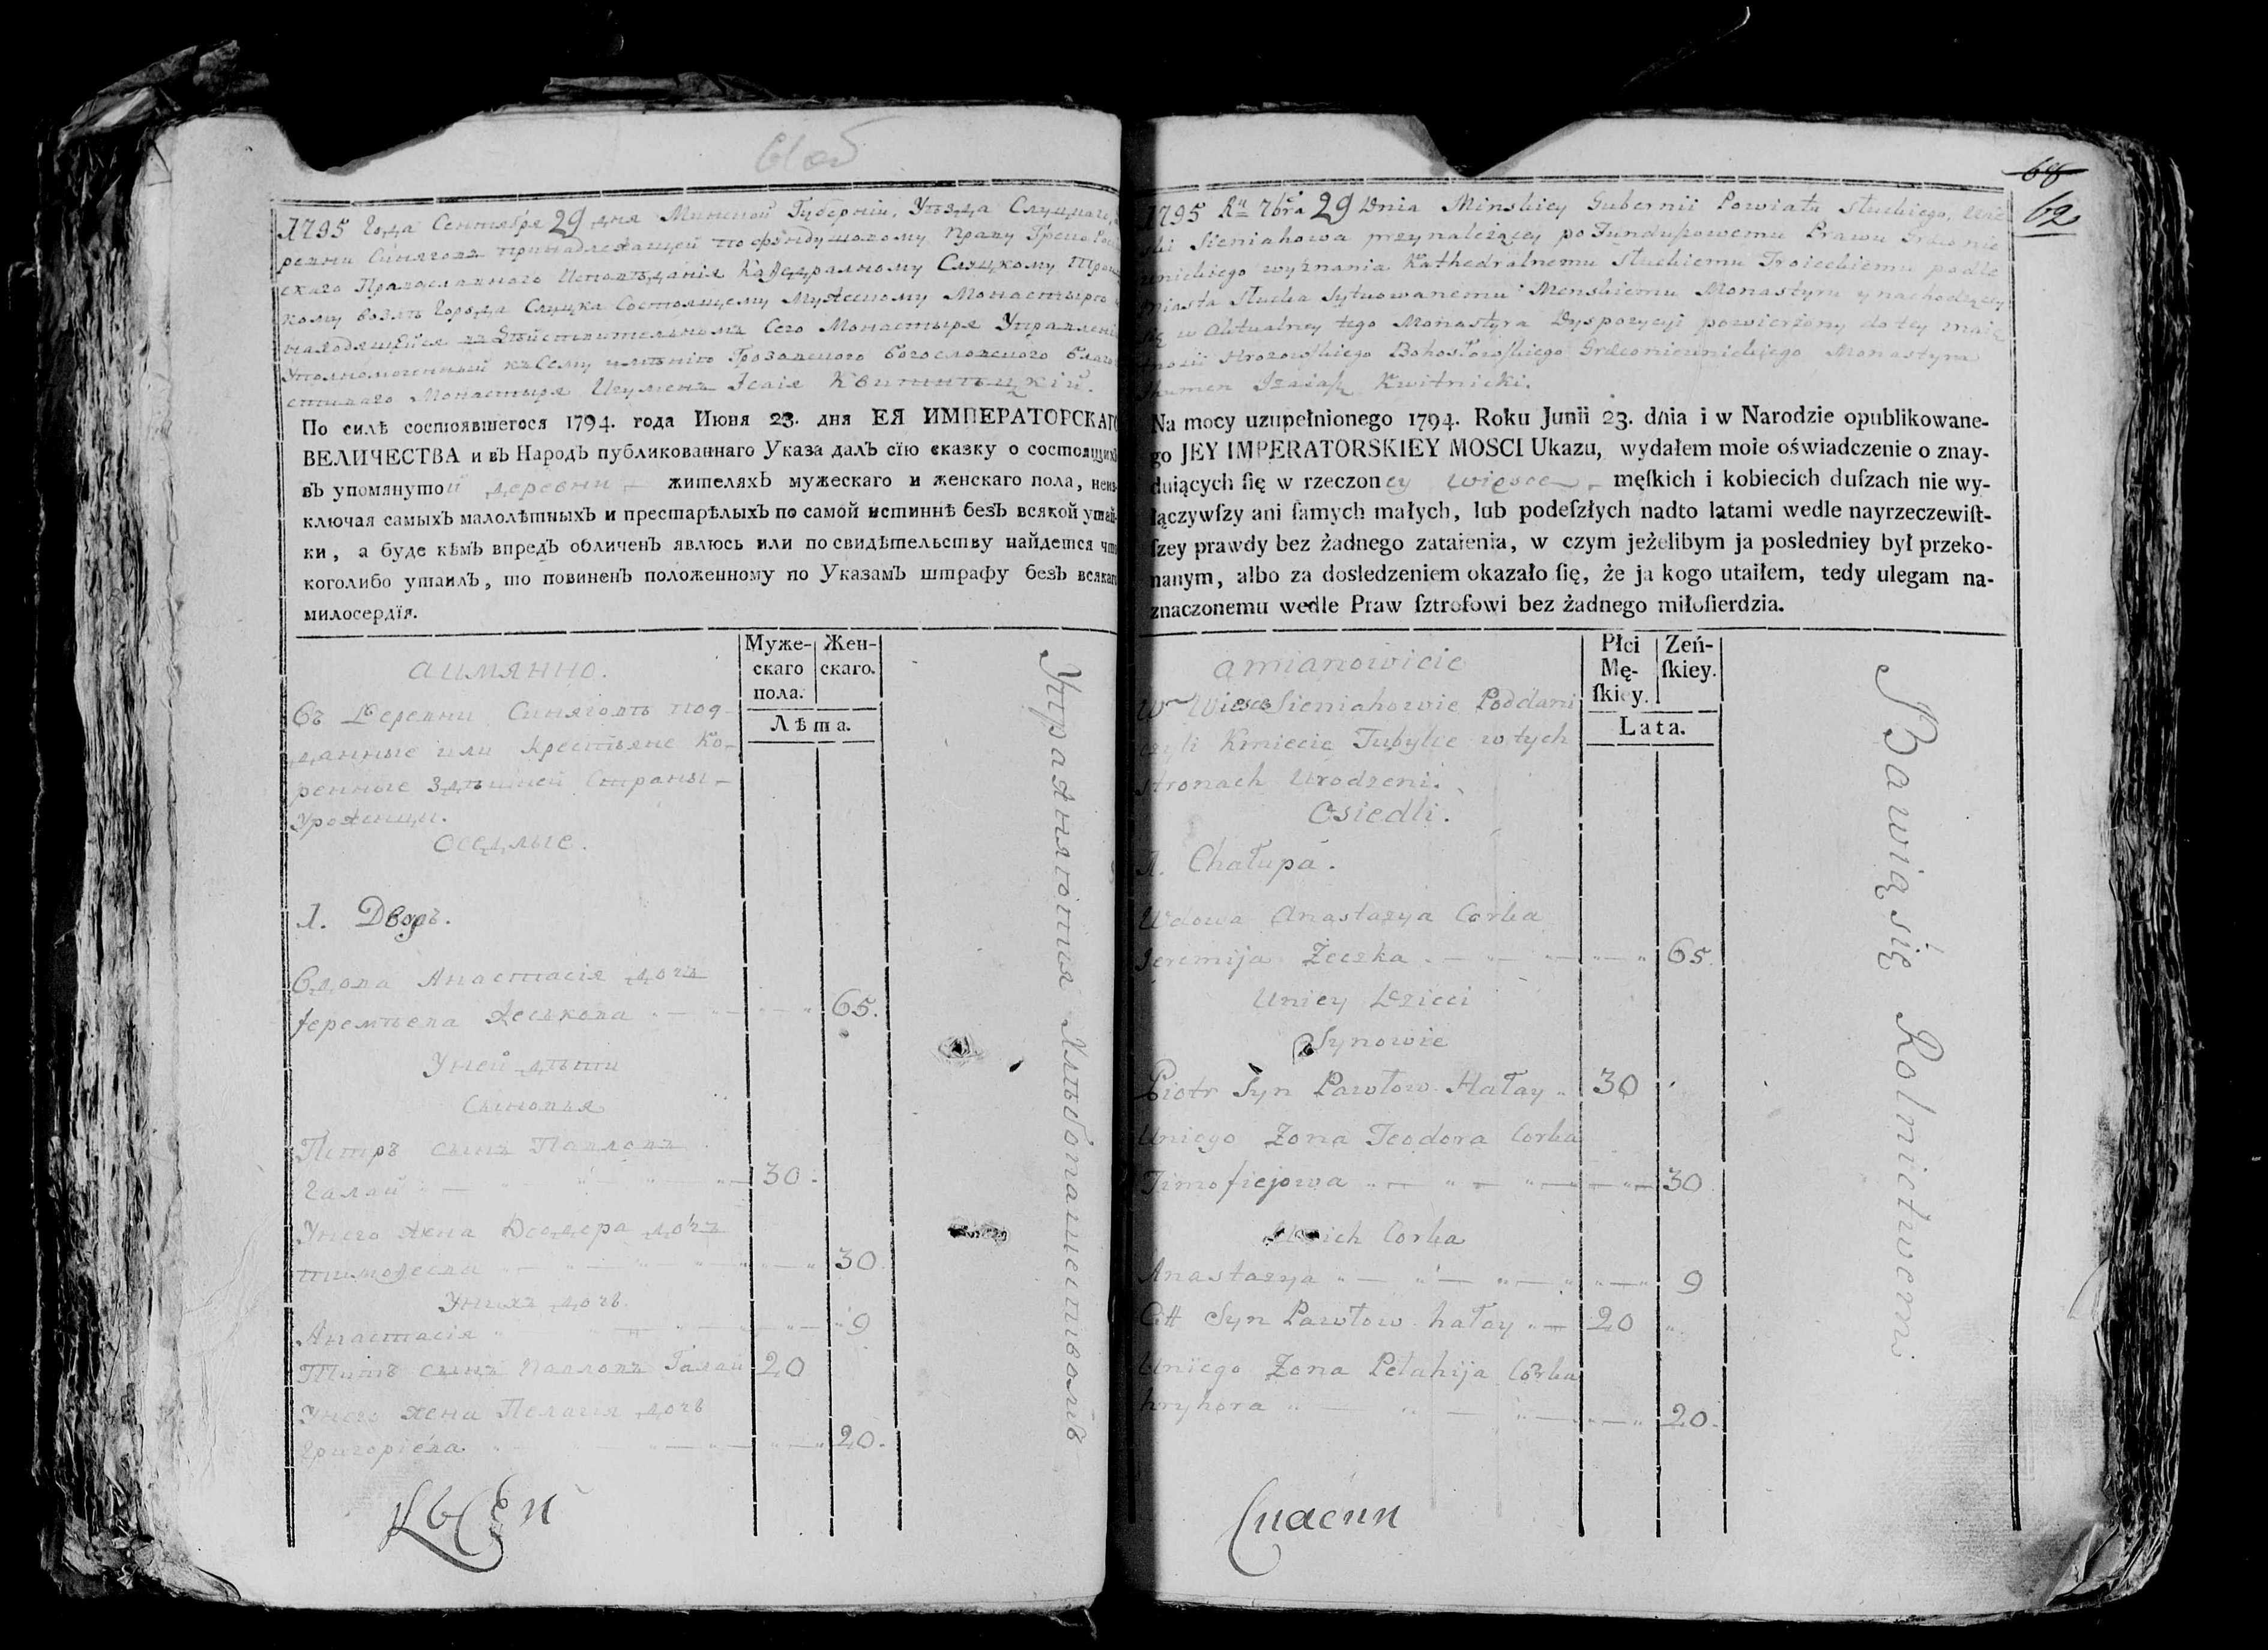 61 об
1795 Года Сентября 29 дня Минской Губерніи, Уѣзда Слуцкаго,
ревни Синяговъ принадлежащей по фундушовому Праву Греко Рос
скаго Православнаго Исповѣданія Кафедральному Слуцкому Трои
кому возлѣ Города Слуцка Состоящему Мужескому Монастырю
находящейся въ Дѣйствительномъ Сего Монастыря Управленіи
Уполномоченный къ Сему имѣнію Грозовского Богословского Благо
Монастыря Игуменъ Исаія Квитницкій.
По силѣ состоявшегося 1794. года Июня 23. дня ЕЯ ИМПЕРАТОРСКАГО
ВЕЛИЧЕСТВА и въ Народѣ публикованнаго Указа далъ сїю сказку о состоящихъ
въ упомянутой деревни жителяхъ мужескаго и женскаго пола, неиз-
ключая самыхъ малолѣтныхъ и престарѣлыхъ по самой истиннѣ безъ всякой утай-
ки, а буде кѣмъ впредь обличенъ явлюсь или по свидѣтельству найдется что
коголибо утаилъ, то повиненъ положенному по Указамъ штрафу безъ всякаго
милосердїя.
Муже- Жен-
скаго скаго.
пола.
Лѣта.
аимянно.
Въ Деревни Синяговѣ под-
данные или крестьяне Ко-
ренные Здѣшней Страны
Уроженцы.
Оседлые.
1. Дворъ.
Вдова Анастасія дочь
Іеремѣева Жечкова 65.
Уней дѣти
Сыновья
Петръ сынъ Павловъ
Галай 30.
Унего жена Феодора дочь
тимофеева 30.
Унихъ дочь
Анастасія 9
Титъ сынъ Павловъ Галай 20
Унего жена Пелагия дочь
Григоріева 20.
Упражняются Хлѣбопашествомъ
68
62
1795 Rᵘ 7bra 29 Dnia Minskiey Gubernii Powiatu Słuckiego, Wio
ski Sieniahowa przynależącey po Funduszowemu Prawu Grekonie
unickiego wyznania Kathedralnemu Słuckiemu Troieckiemu podle
miasta Słucka Sytuowanemu Menskiemu Monastyru y nachodzącey
się w Aktualney tego Monastyra Dyspozycyi powierzony do tey maię
tności Hrozowskiego Bohosłowskiego Grekonieunickiego Monastyra
Ihumen Izaiasz Kwitnicki.
Na mocy uzupełnionego 1794. Roku Junii 23. dnia i w Narodzie opublikowane-
go JEY IMPERATORSKIEY MOSCI Ukazu, wydałem moie oświadczenie o znay-
duiących ſię w rzeczoney wiosce męſkich i kobiecich duſzach nie wy-
łączywſzy ani ſamych małych, lub podeſzłych nadto latami wedle nayrzeczewiſt-
ſzey prawdy bez żadnego zataienia, w czym jeżelibym ja posledniey był przeko-
nanym, albo za dosledzeniem okazało ſię, że ja kogo utaiłem, tedy ulegam na-
znaczonemu wedle Praw ſztrofowi bez żadnego miłoſierdzia.
Płci Zeń-
Mę- ſkiey.
ſkiey.
Lata.
amianowicie
W Wiosce Sieniahowie Poddani
czyli Kmiecie Tubylce w tych
stronach Urodzeni.
Osiedli.
1. Chałupa.
Wdowa Anastazya Corka
Jeremija Żeczka 65.
Uniey Dzieci
Synowie
Piotr Syn Pawłow Hałay 30
Uniego Żona Teodora Corka
Timofiejowa 30.
Unich Corka
Anastazya 9
Syn Pawłow hałay 20
Uniego Żona Pelahija Corka
hryhora 20.
Bawią się Rolnictwem